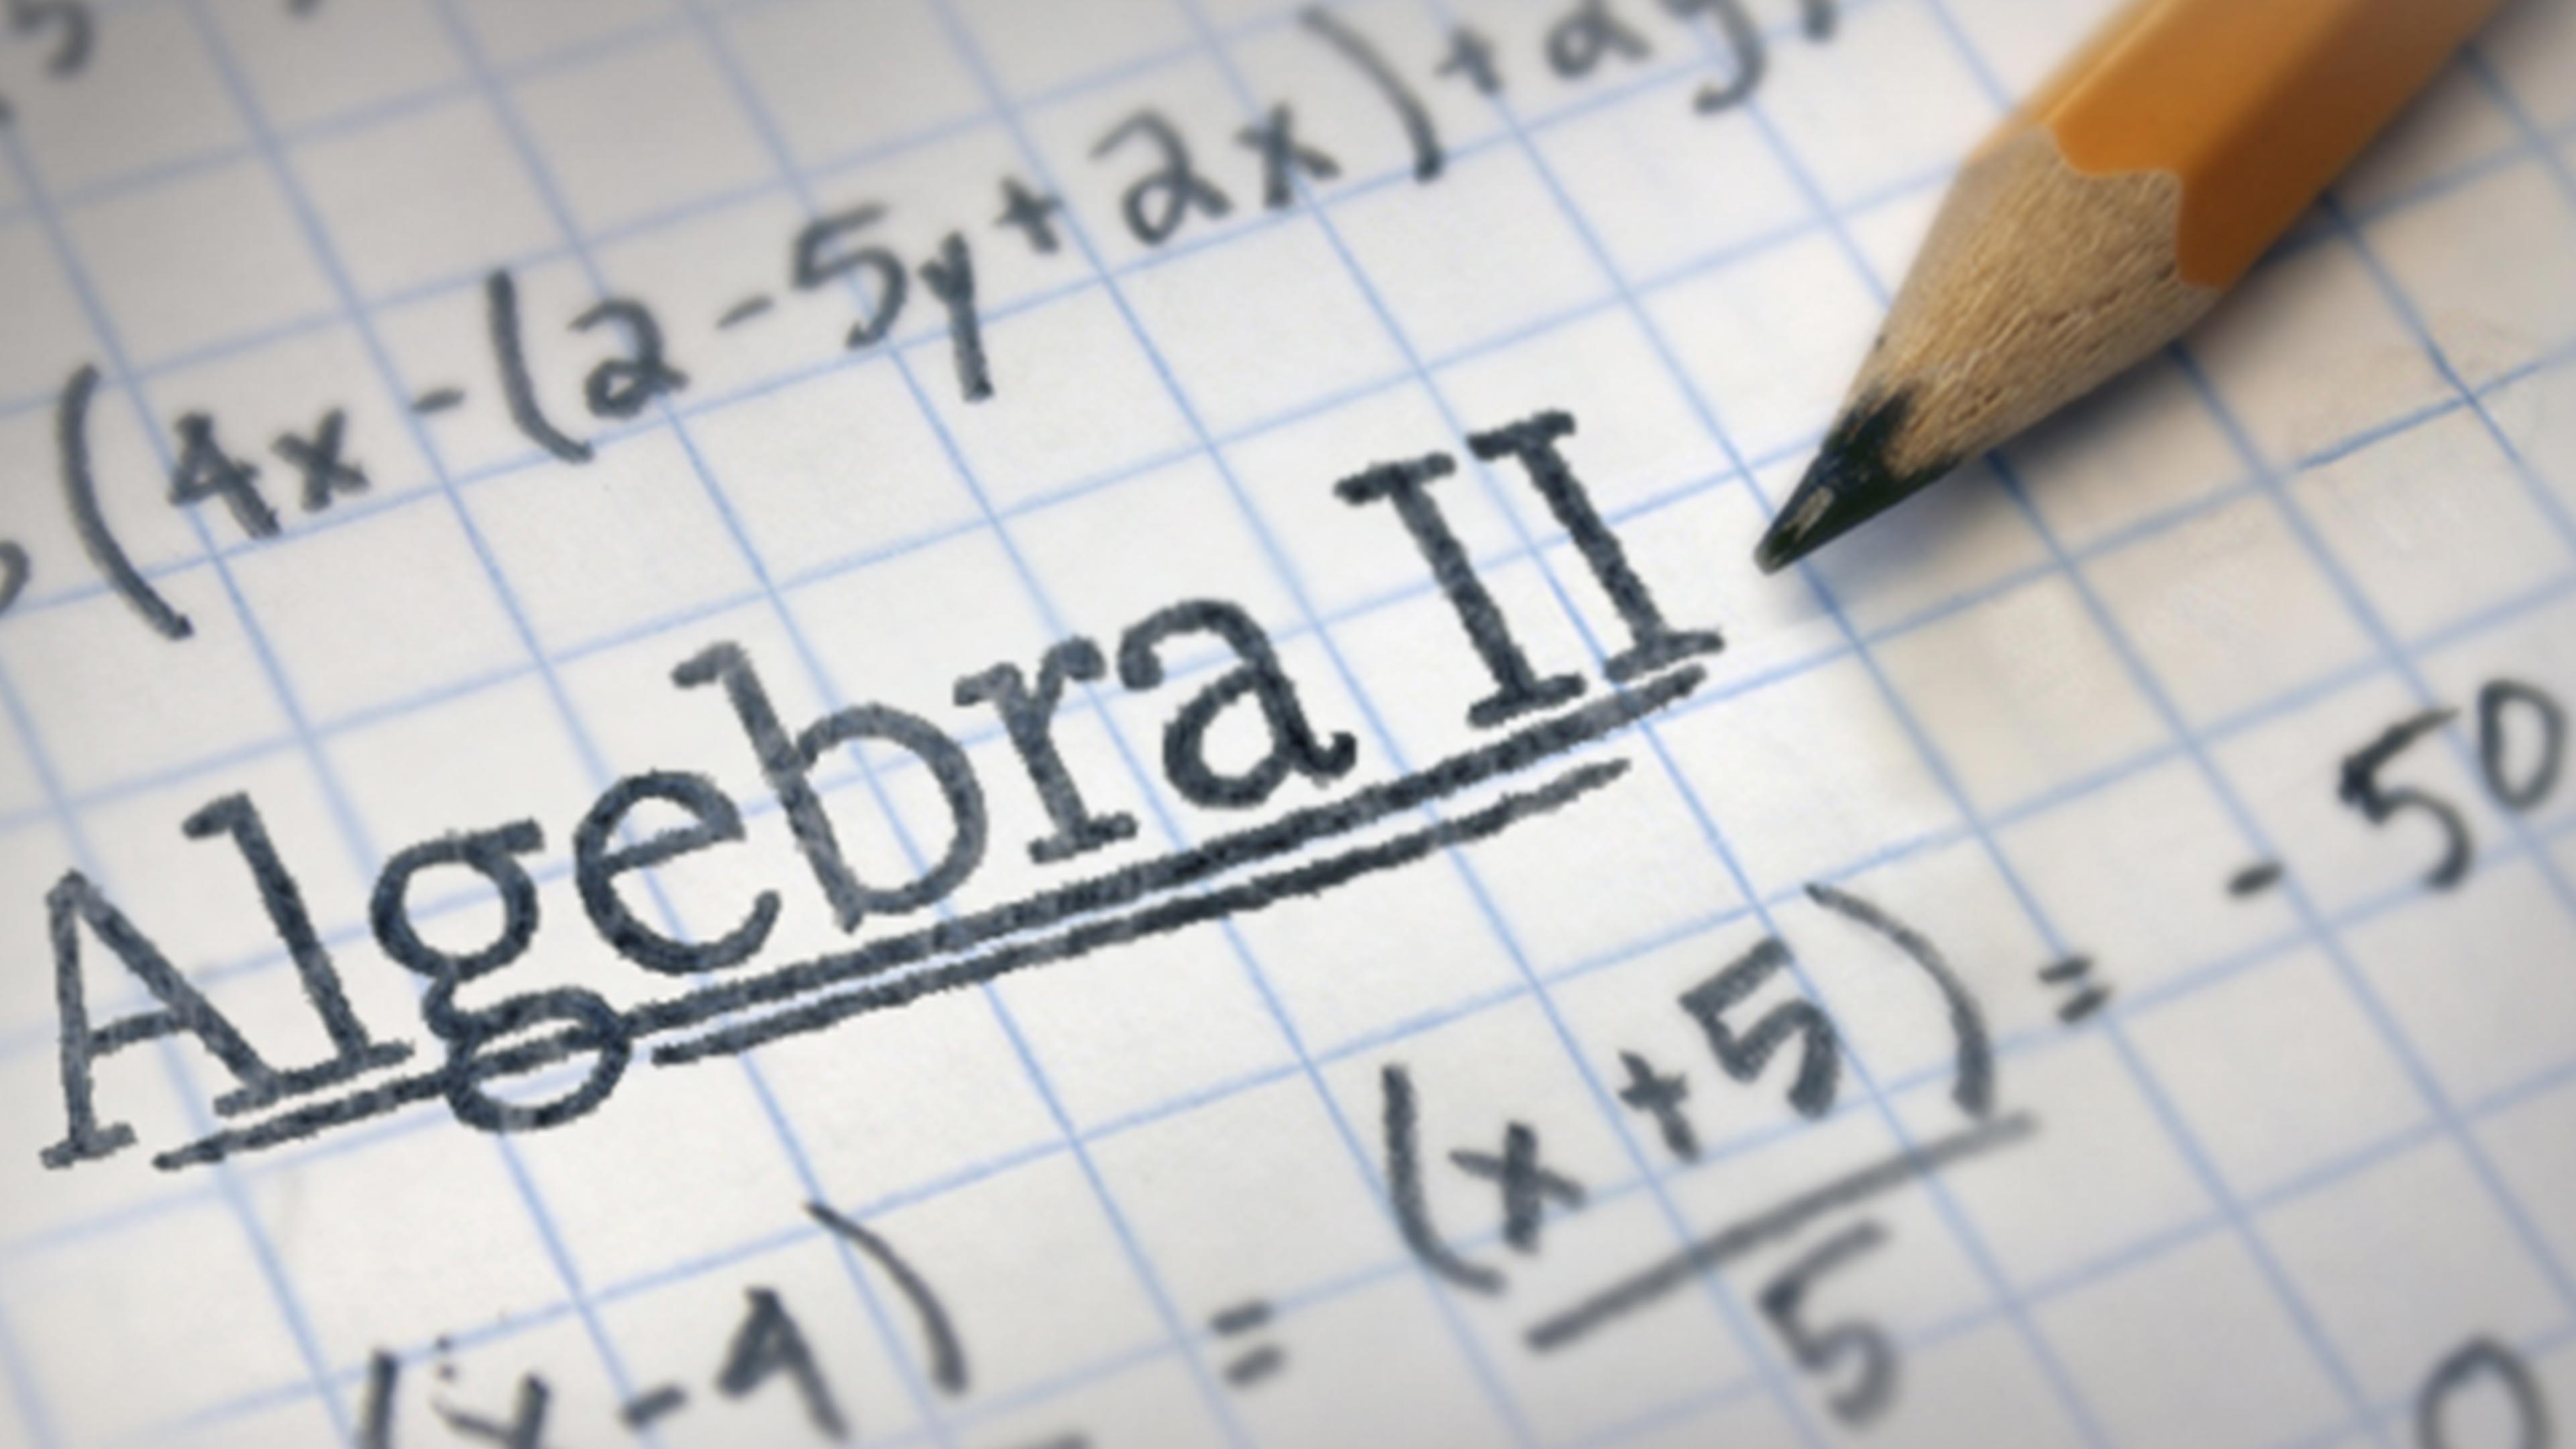 (4x - (2 - 5y + 2x) + ay
Algebra II
(x + 5) = - 50
5
- 4) =